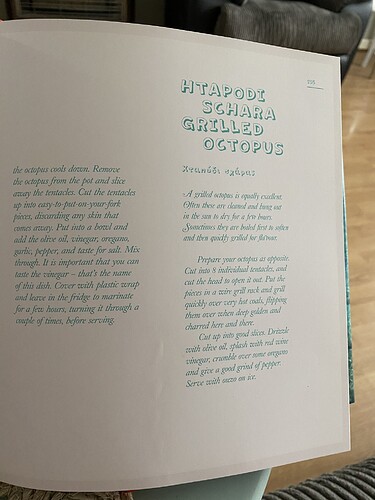 the octopus cools down. Remove
the octopus from the pot and slice
away the tentacles. Cut the tentacles
up into easy-to-put-on-your-fork
pieces, discarding any skin that
comes away. Put into a bowl and
add the olive oil, vinegar, oregano,
garlic, pepper, and taste for salt. Mix
through. It is important that you can
taste the vinegar – that's the name
of this dish. Cover with plastic wrap
and leave in the fridge to marinate
for a few hours, turning it through a
couple of times, before serving.
HTAPODI
SCHARA
GRILLED
OCTOPUS
Χταπόδι σχάρας
A grilled octopus is equally excellent.
Often these are cleaned and hung out
in the sun to dry for a few hours.
Sometimes they are boiled first to soften
and then quickly grilled for flavour.
Prepare your octopus as opposite.
Cut into 8 individual tentacles, and
cut the head to open it out. Put the
pieces in a wire grill rack and grill
quickly over very hot coals, flipping
them over when deep golden and
charred here and there.
Cut up into good slices. Drizzle
with olive oil, splash with red wine
vinegar, crumble over some oregano
and give a good grind of pepper.
Serve with ouzo on ice.